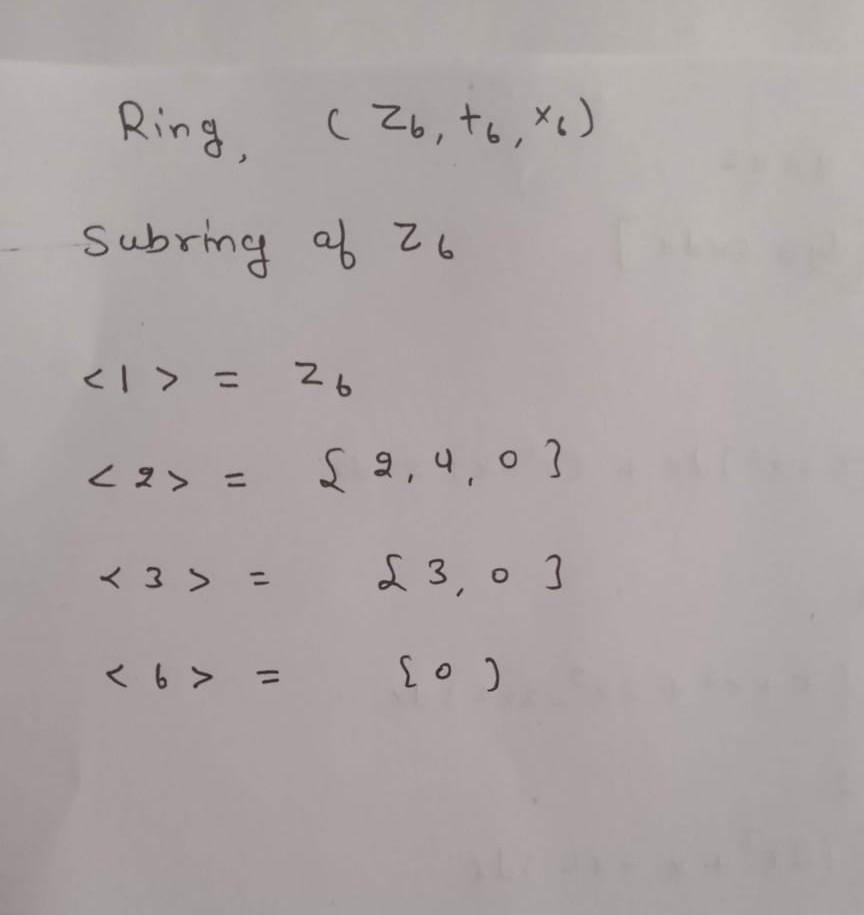 Ring, ( Z6, +6, ×6)
Subring of Z6
<1> = Z6
<2> = {2, 4, 0}
<3> = {3, 0}
<6> = {0}